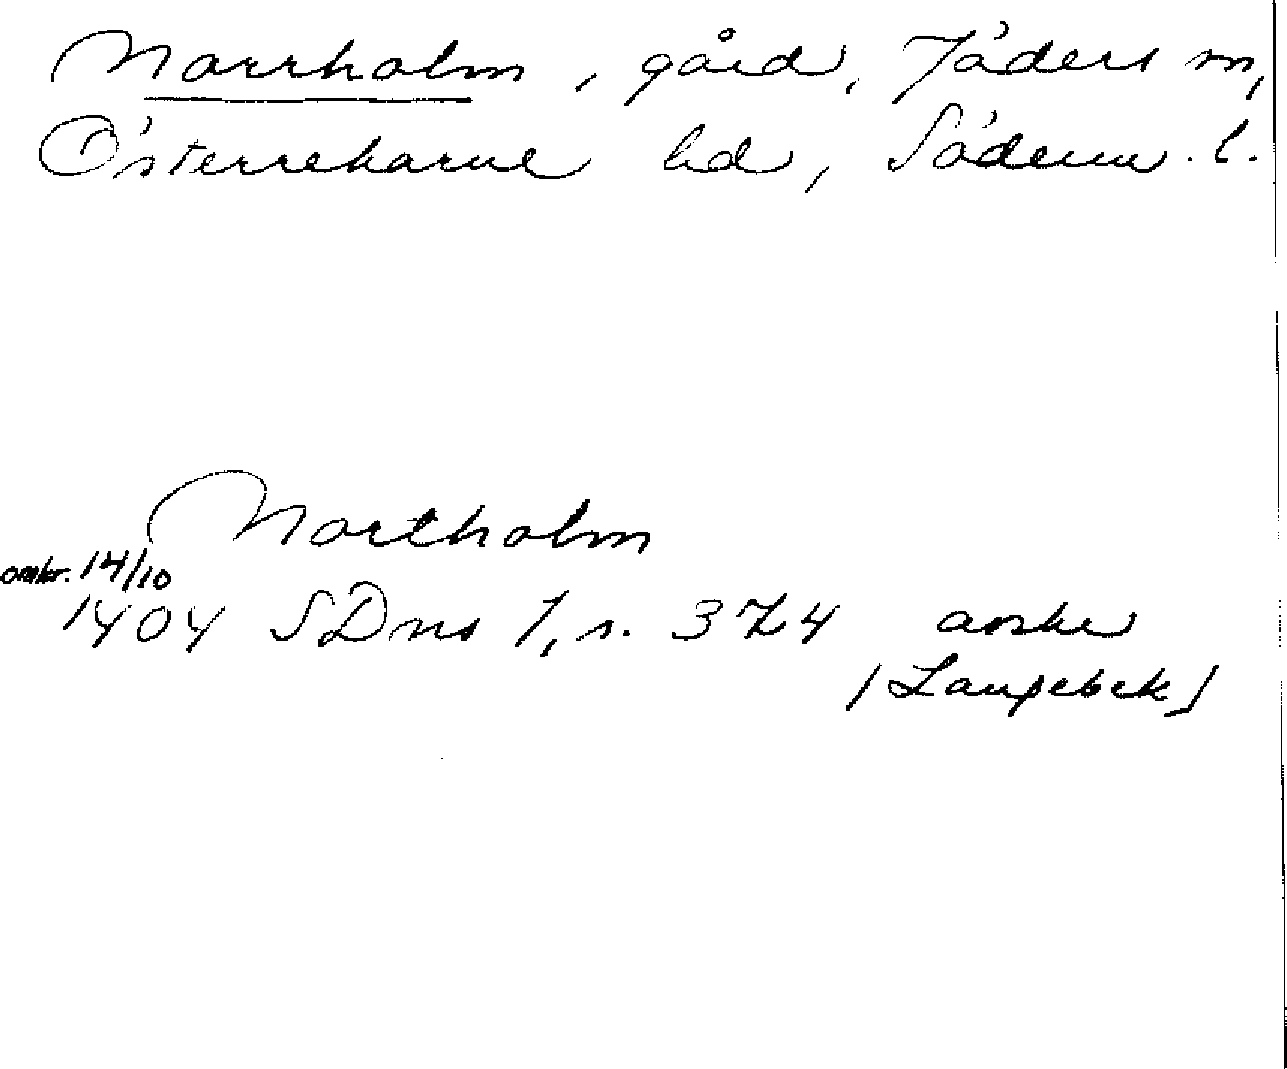 Norrholm, gård, Jäders sn,
Österrekarne hd, Söderm. l.
Northolm
omkr. 14/10
1404 SDns 1, s. 324 avskr
[Langebek]